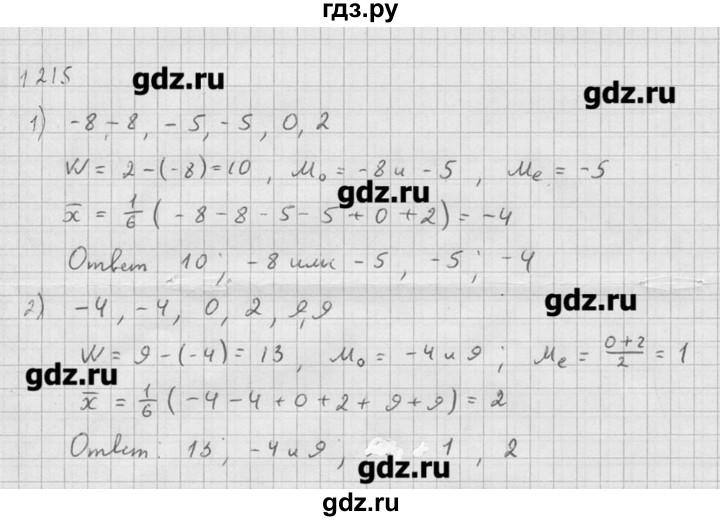 гдз.ру
1215
gdz.ru
gdz.ru
1) -8, -8, -5, -5, 0, 2
W = 2-(-8)=10, Mo = -8 и -5, Me = -5
gdz.ru
x̅ = 1/6 (-8-8-5-5+0+2) = -4
Ответ 10; -8 или -5, -5; -4
gdz.ru
2) -4, -4, 0, 2, 9, 9
W = 9-(-4)= 13, Mo = -4 и 9; Me = 0+2/2 = 1
gdz.ru
x̅ = 1/6 (-4-4+0+2+9+9) = 2
Ответ: 13; -4 и 9; 1, 2
gdz.ru
gdz.ru